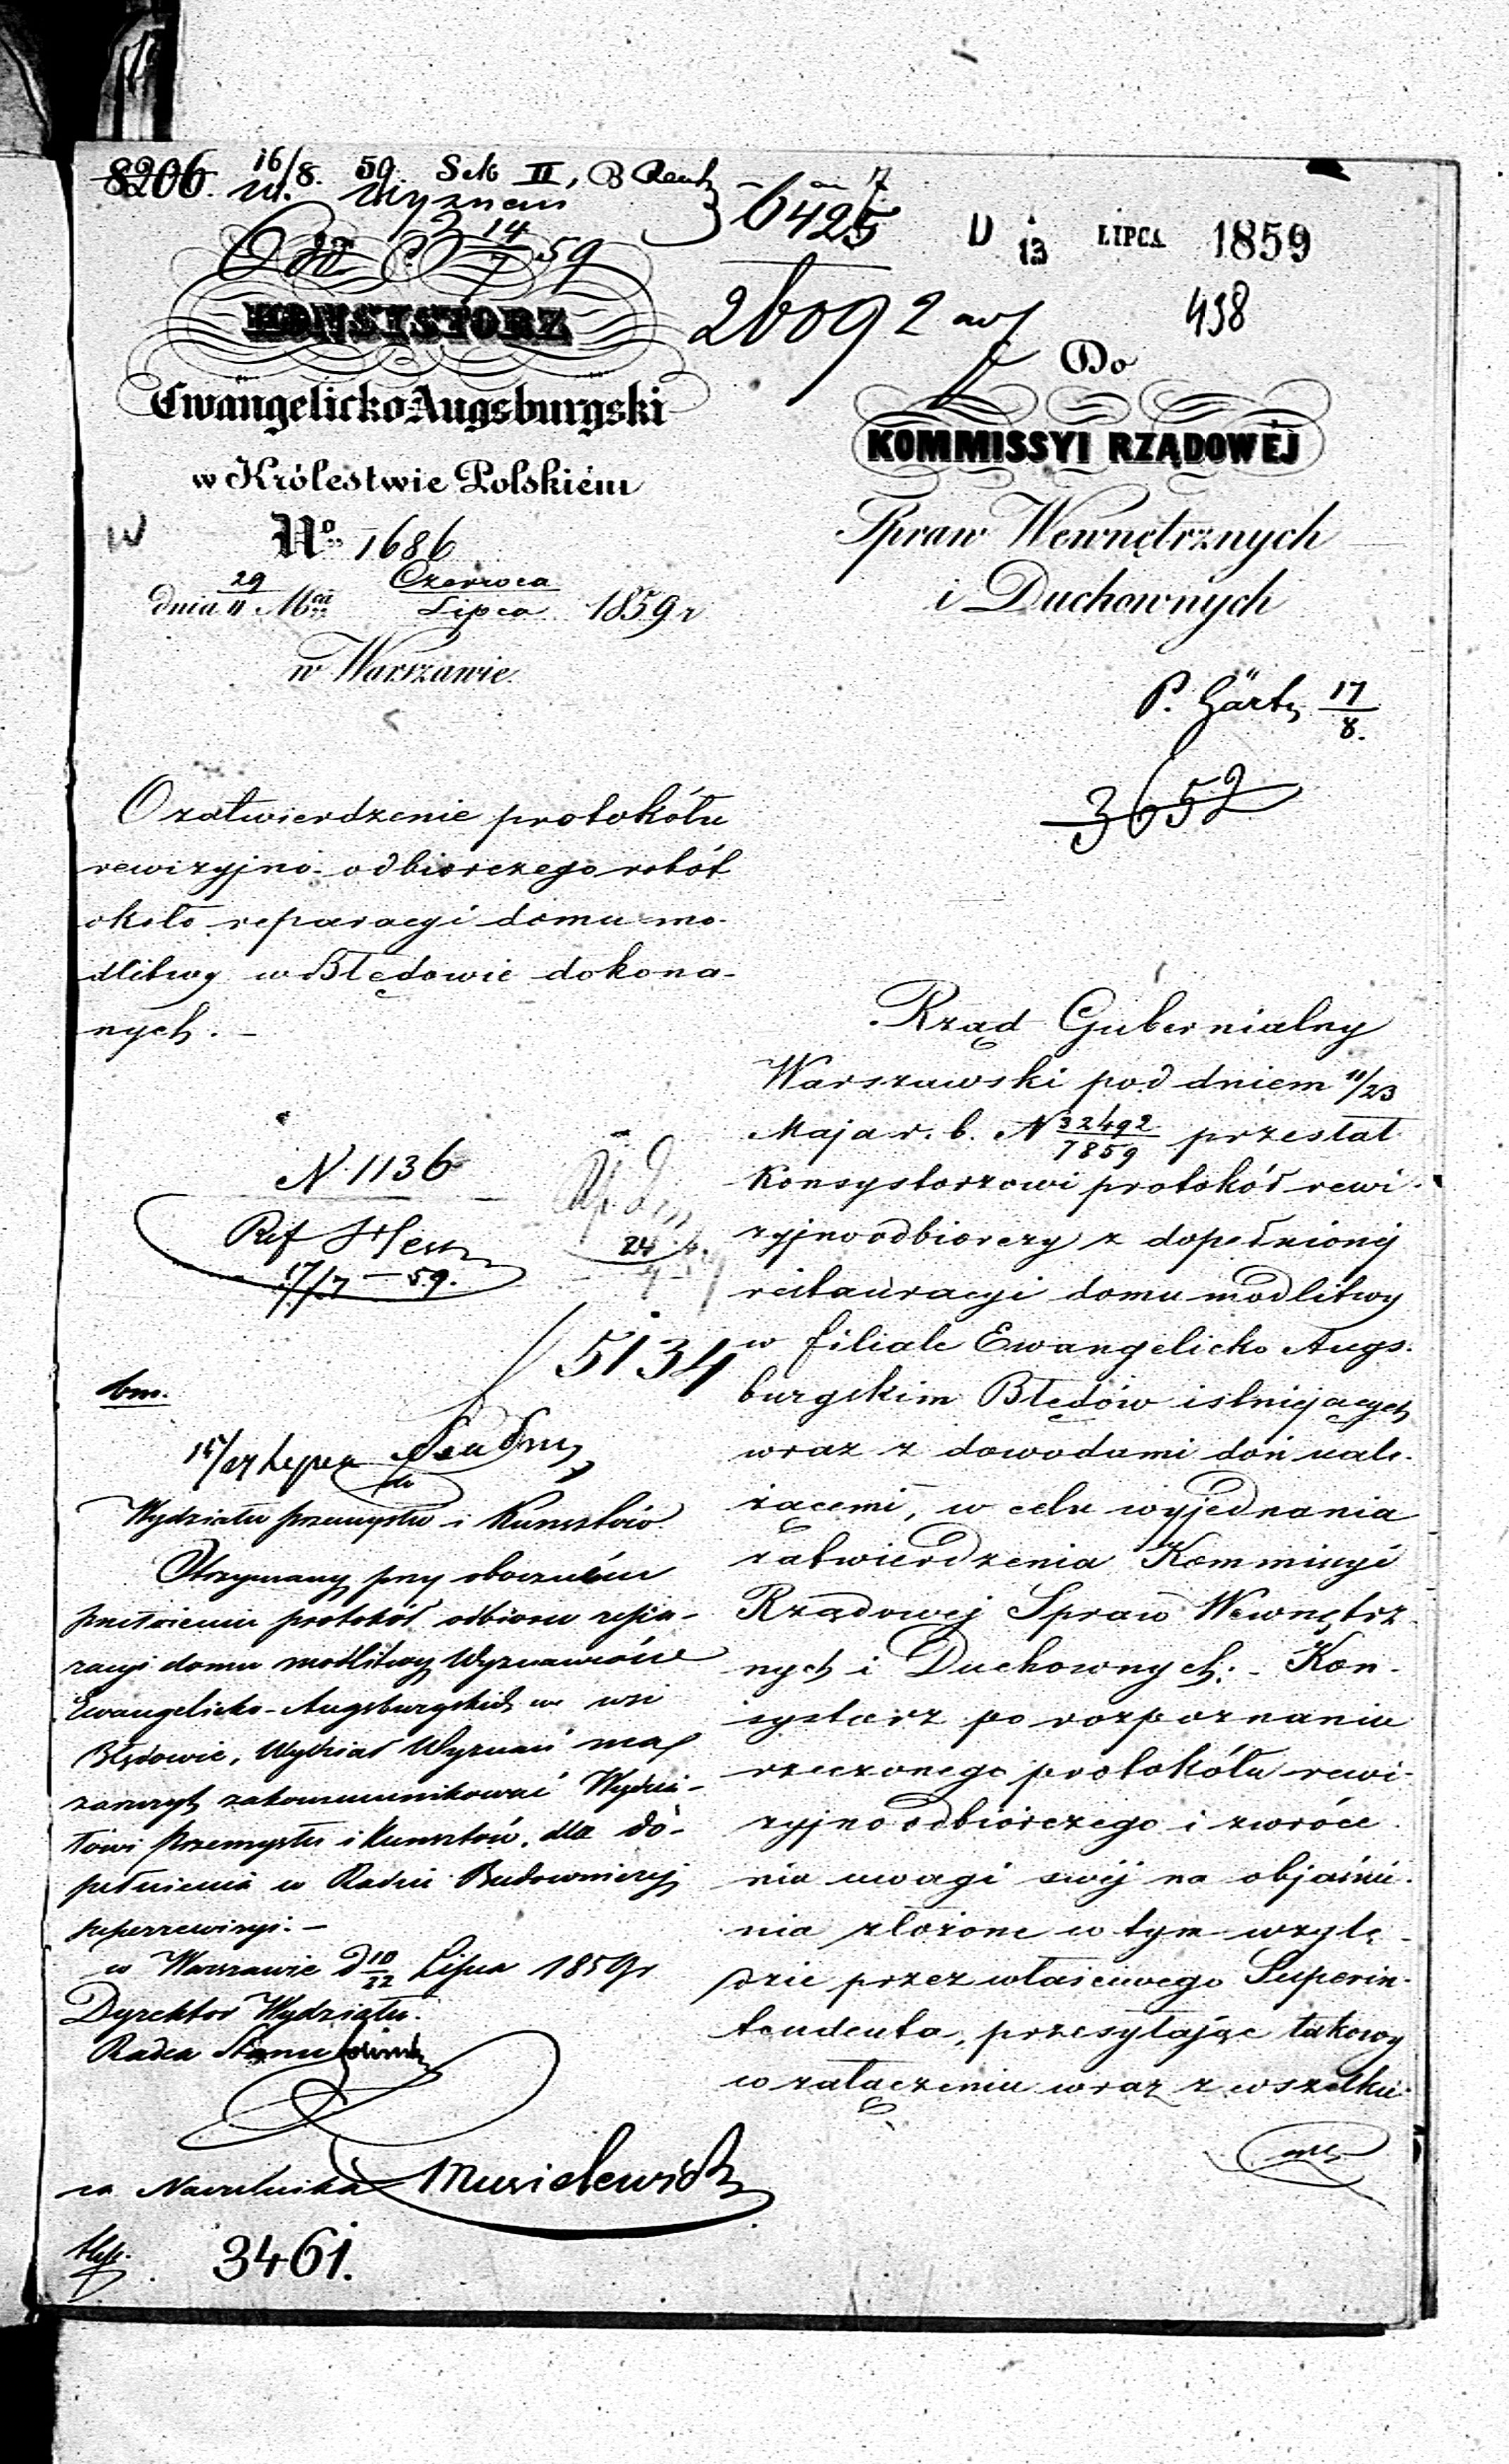 8206. 16/8. 59. Sek II,
W. Wyznań
6425
D 13 LIPCA 1859
14/7 59
26092
498
KONSYSTORZ
Ewangelicko-Augsburgski
w Królestwie Polskiém
No 1686
dnia 29/11 Mca Czerwca/Lipca 1859 r
w Warszawie.
Do
KOMMISSYI RZĄDOWÉJ
Spraw Wewnętrznych
i Duchownych
P. Gärtn 17/8.
3652
O zatwierdzenie protokółu
rewizyjno-odbiorczego robót
około reparacyi domu mo-
dlitwy w Błędowie dokona-
nych. -
N. 1136
Ref
17/7 - 59.
5134
Rząd Gubernialny
Warszawski pod dniem 11/23
Maja r. b. N 32492/7859 przesłał
Konsystorzowi protokół rewi-
zyjno odbiorczy z dopełnionéj
restauracyi domu modlitwy
w filiale Ewangelicko Augs-
burgskim Błędów istniejących
wraz z dowodami doń nale-
żącemi, w celu wyjednania
zatwierdzenia Kommissyi
Rządowej Spraw Wewnętrz-
nych i Duchownych. - Kon-
systorz po rozpoznaniu
rzeczonego protokółu rewi-
zyjno odbiorczego i zwróce-
niu uwagi swéj na objaśnie-
nia złożone w tym wzglę-
dzie przez właściwego Superin-
tendenta, przesyłając takowy
w załączeniu wraz z wszelkie-
bm.
15/27 Lipca
do
Wydziału Przemysłu i Kunsztów.
Otrzymany przy oboczném
przełożeniu protokół odbioru repa-
racyi domu modlitwy Wyznawców
Ewangelicko-Augsburgskich we wsi
Błędowie, Wydział Wyznań ma
zaszczyt zakommunikować Wydzia-
łowi Przemysłu i Kunsztów, dla do-
pełnienia w Radzie Budowniczéj
superrewizyi. -
w Warszawie d 10/22 Lipca 1859 r
Dyrektor Wydziału.
Radca Stanu
za Naczelnika
3461.